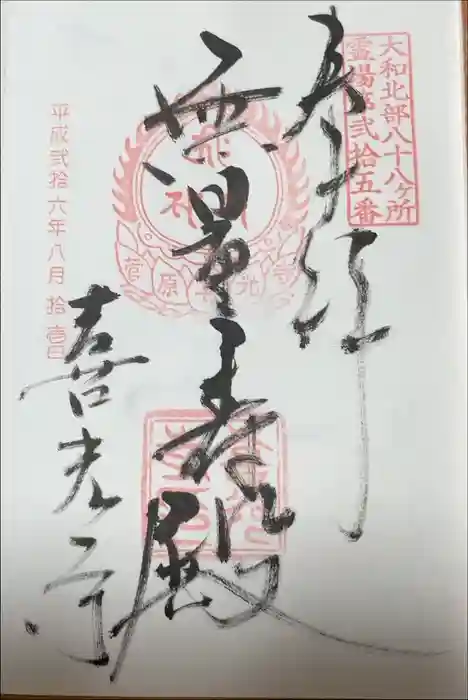 大和北部八十八ヶ所
霊場第弐拾五番
奉拝
無量寿殿
菅原
平成弐拾六年八月拾壱日
喜光寺